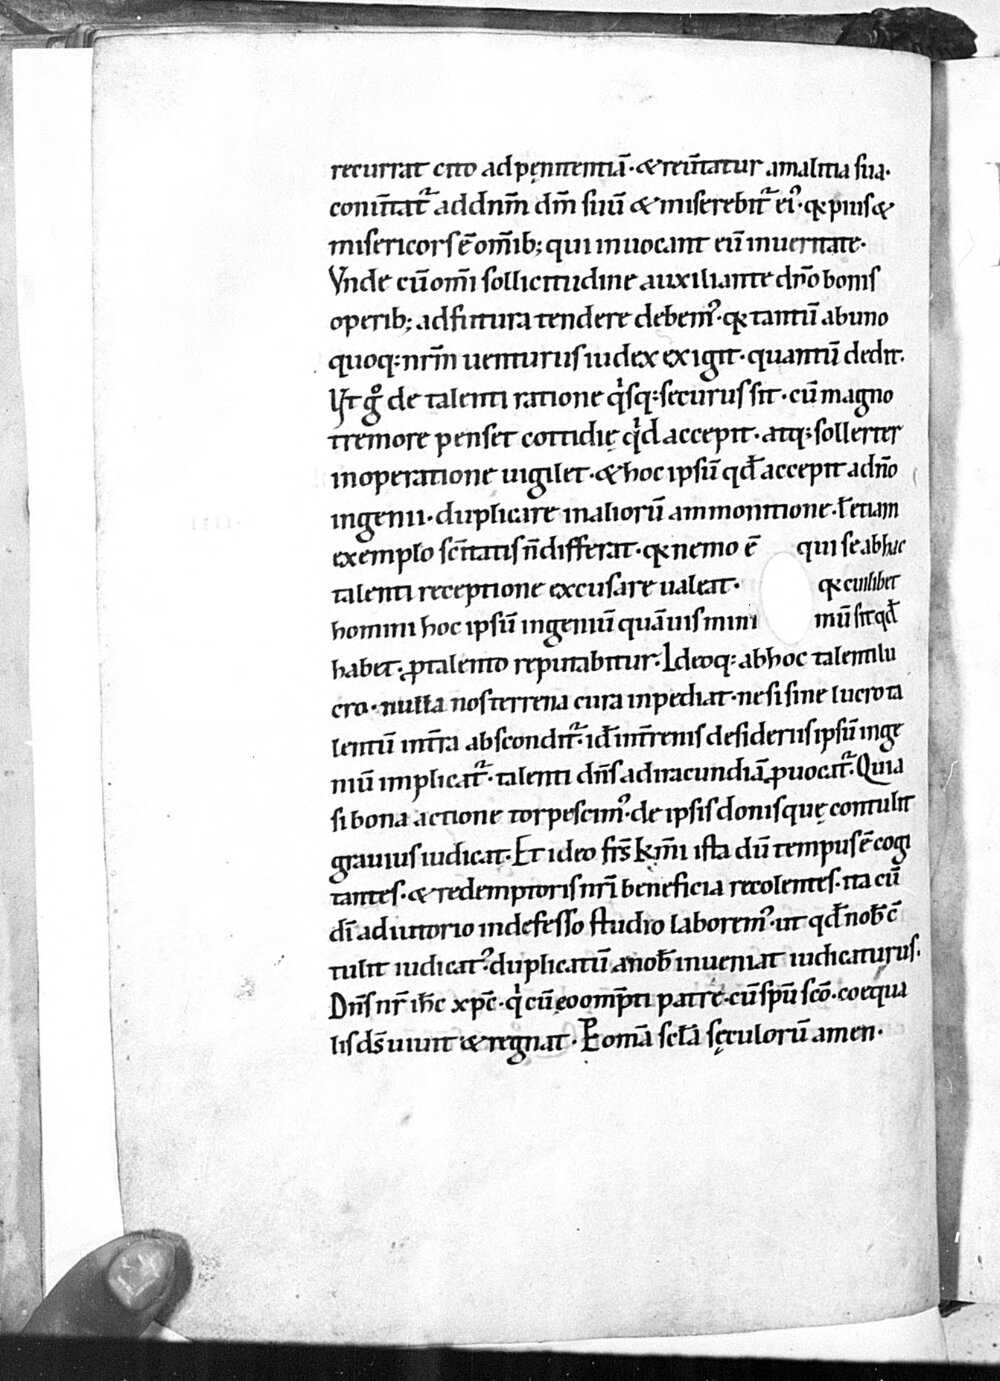 recurrat cito ad penitentiā · & reūtatur a malitia sua ·
conūtat᷑ ad dnm̄ dm̄ suū & miserebit᷑ ei᷒ · q̶ pius &
misericors ē om̄ib; qui inuocant eū in ueritate ·
Vnde cū om̄i sollicitudine auxiliante dn̄o bonis
operib; ad futura tendere debem᷒ · q̶ tantū ab uno
quoq: nrm̄ uenturus iudex exigit · quantū dedit.
Vt gͦ de talenti ratione qͥsq: securus sit · cū magno
tremore penset cottidię qͥd accepit · atq: sollerter
in operatione uigilet · & hoc ipsū qd̄ accepit a dn̄o
ingenii · duplicare maliorū ammonitione · ł etiam
exemplo sc̄itatis n̄ differat · q̶ nemo ē qui se ab hac
talenti receptione excusare ualeat · q̶ cuilibet
homini hoc ipsū ingeniū quāuis minimū sit qd̄
habet · ꝓ talento reputabitur · Ideoq: ab hoc talenti lu
cro · nulla nos terrena cura inpediat · ne si sine lucro ta
lentū int̄ra abscondit᷑ · id ē in t̄renis desideriis ipsū inge
niū implicat᷑ · talenti dn̄s ad iracundiā ꝓuocat᷑ · Quia
si bona actione torpescim᷒ · de ipsis donis quę contulit
grauius iudicat · Et ideo frs̄ km̄i ista dū tempus ē cogi
tantes · & redemptoris nr̄i beneficia recolentes · ita cū
dī adiutorio indefesso studio laborem᷒ · ut qd̄ nob̄ c̄
tulit iudicat᷒ duplicatū a nob̄ inueniat iudicaturus ·
Dn̄s nr̄ ihc̄ xpc̄ · qͥ cū eo omp̄ti patre · cū spū scō · coequa
lis ds̄ uiuit & regnat · P̲ omā scl̄a sęculorū amen ·